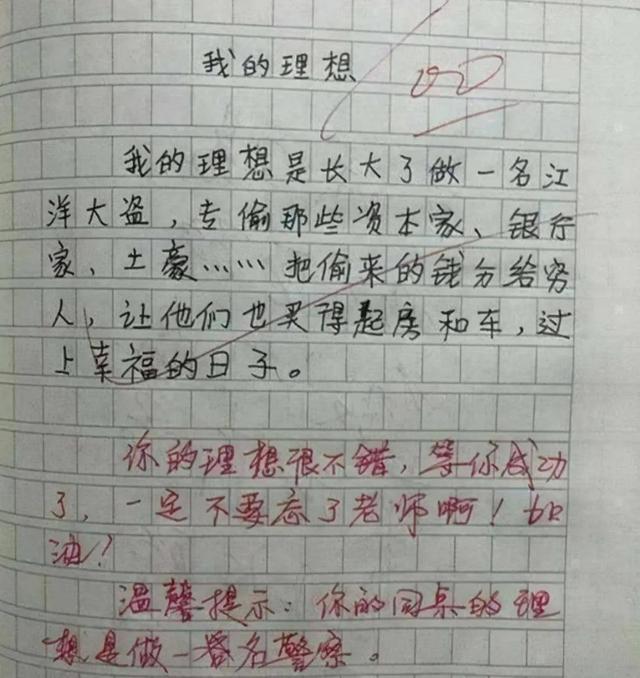 我的理想
100
我的理想是长大了做一名江
洋大盗，专偷那些资本家、银行
家、土豪……把偷来的钱分给穷
人，让他们也买得起房和车，过
上幸福的日子。
你的理想很不错，等你成功
了，一定不要忘了老师啊！加
油！
温馨提示：你的同桌的理
想是做一名警察。